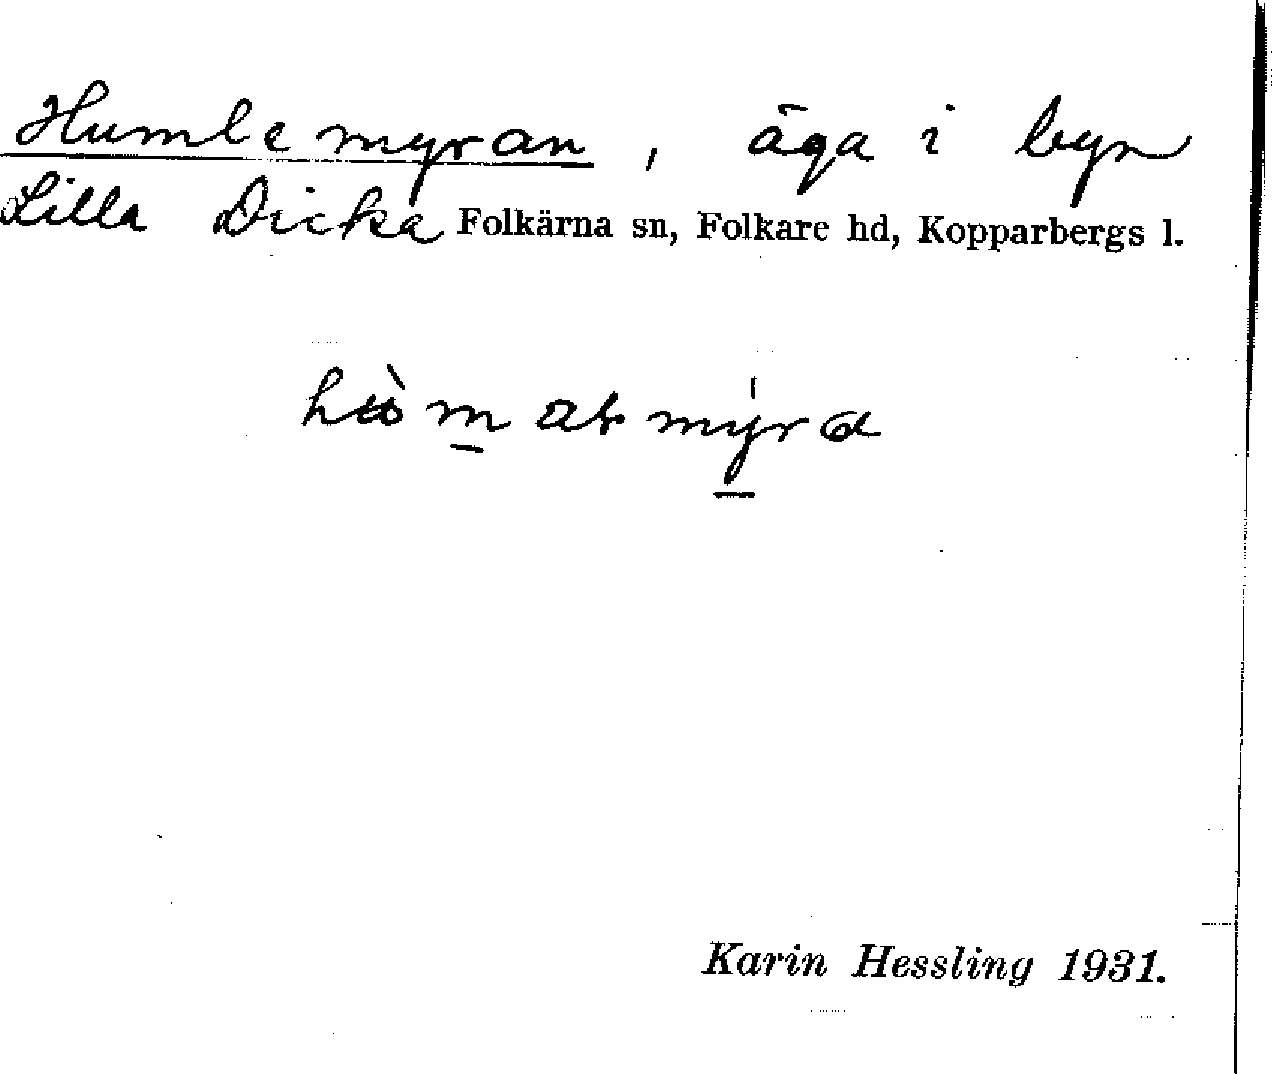 Humlemyran, äga i byn
Lilla Dicka Folkärna sn, Folkare hd, Kopparbergs l.
Karin Hessling 1931.